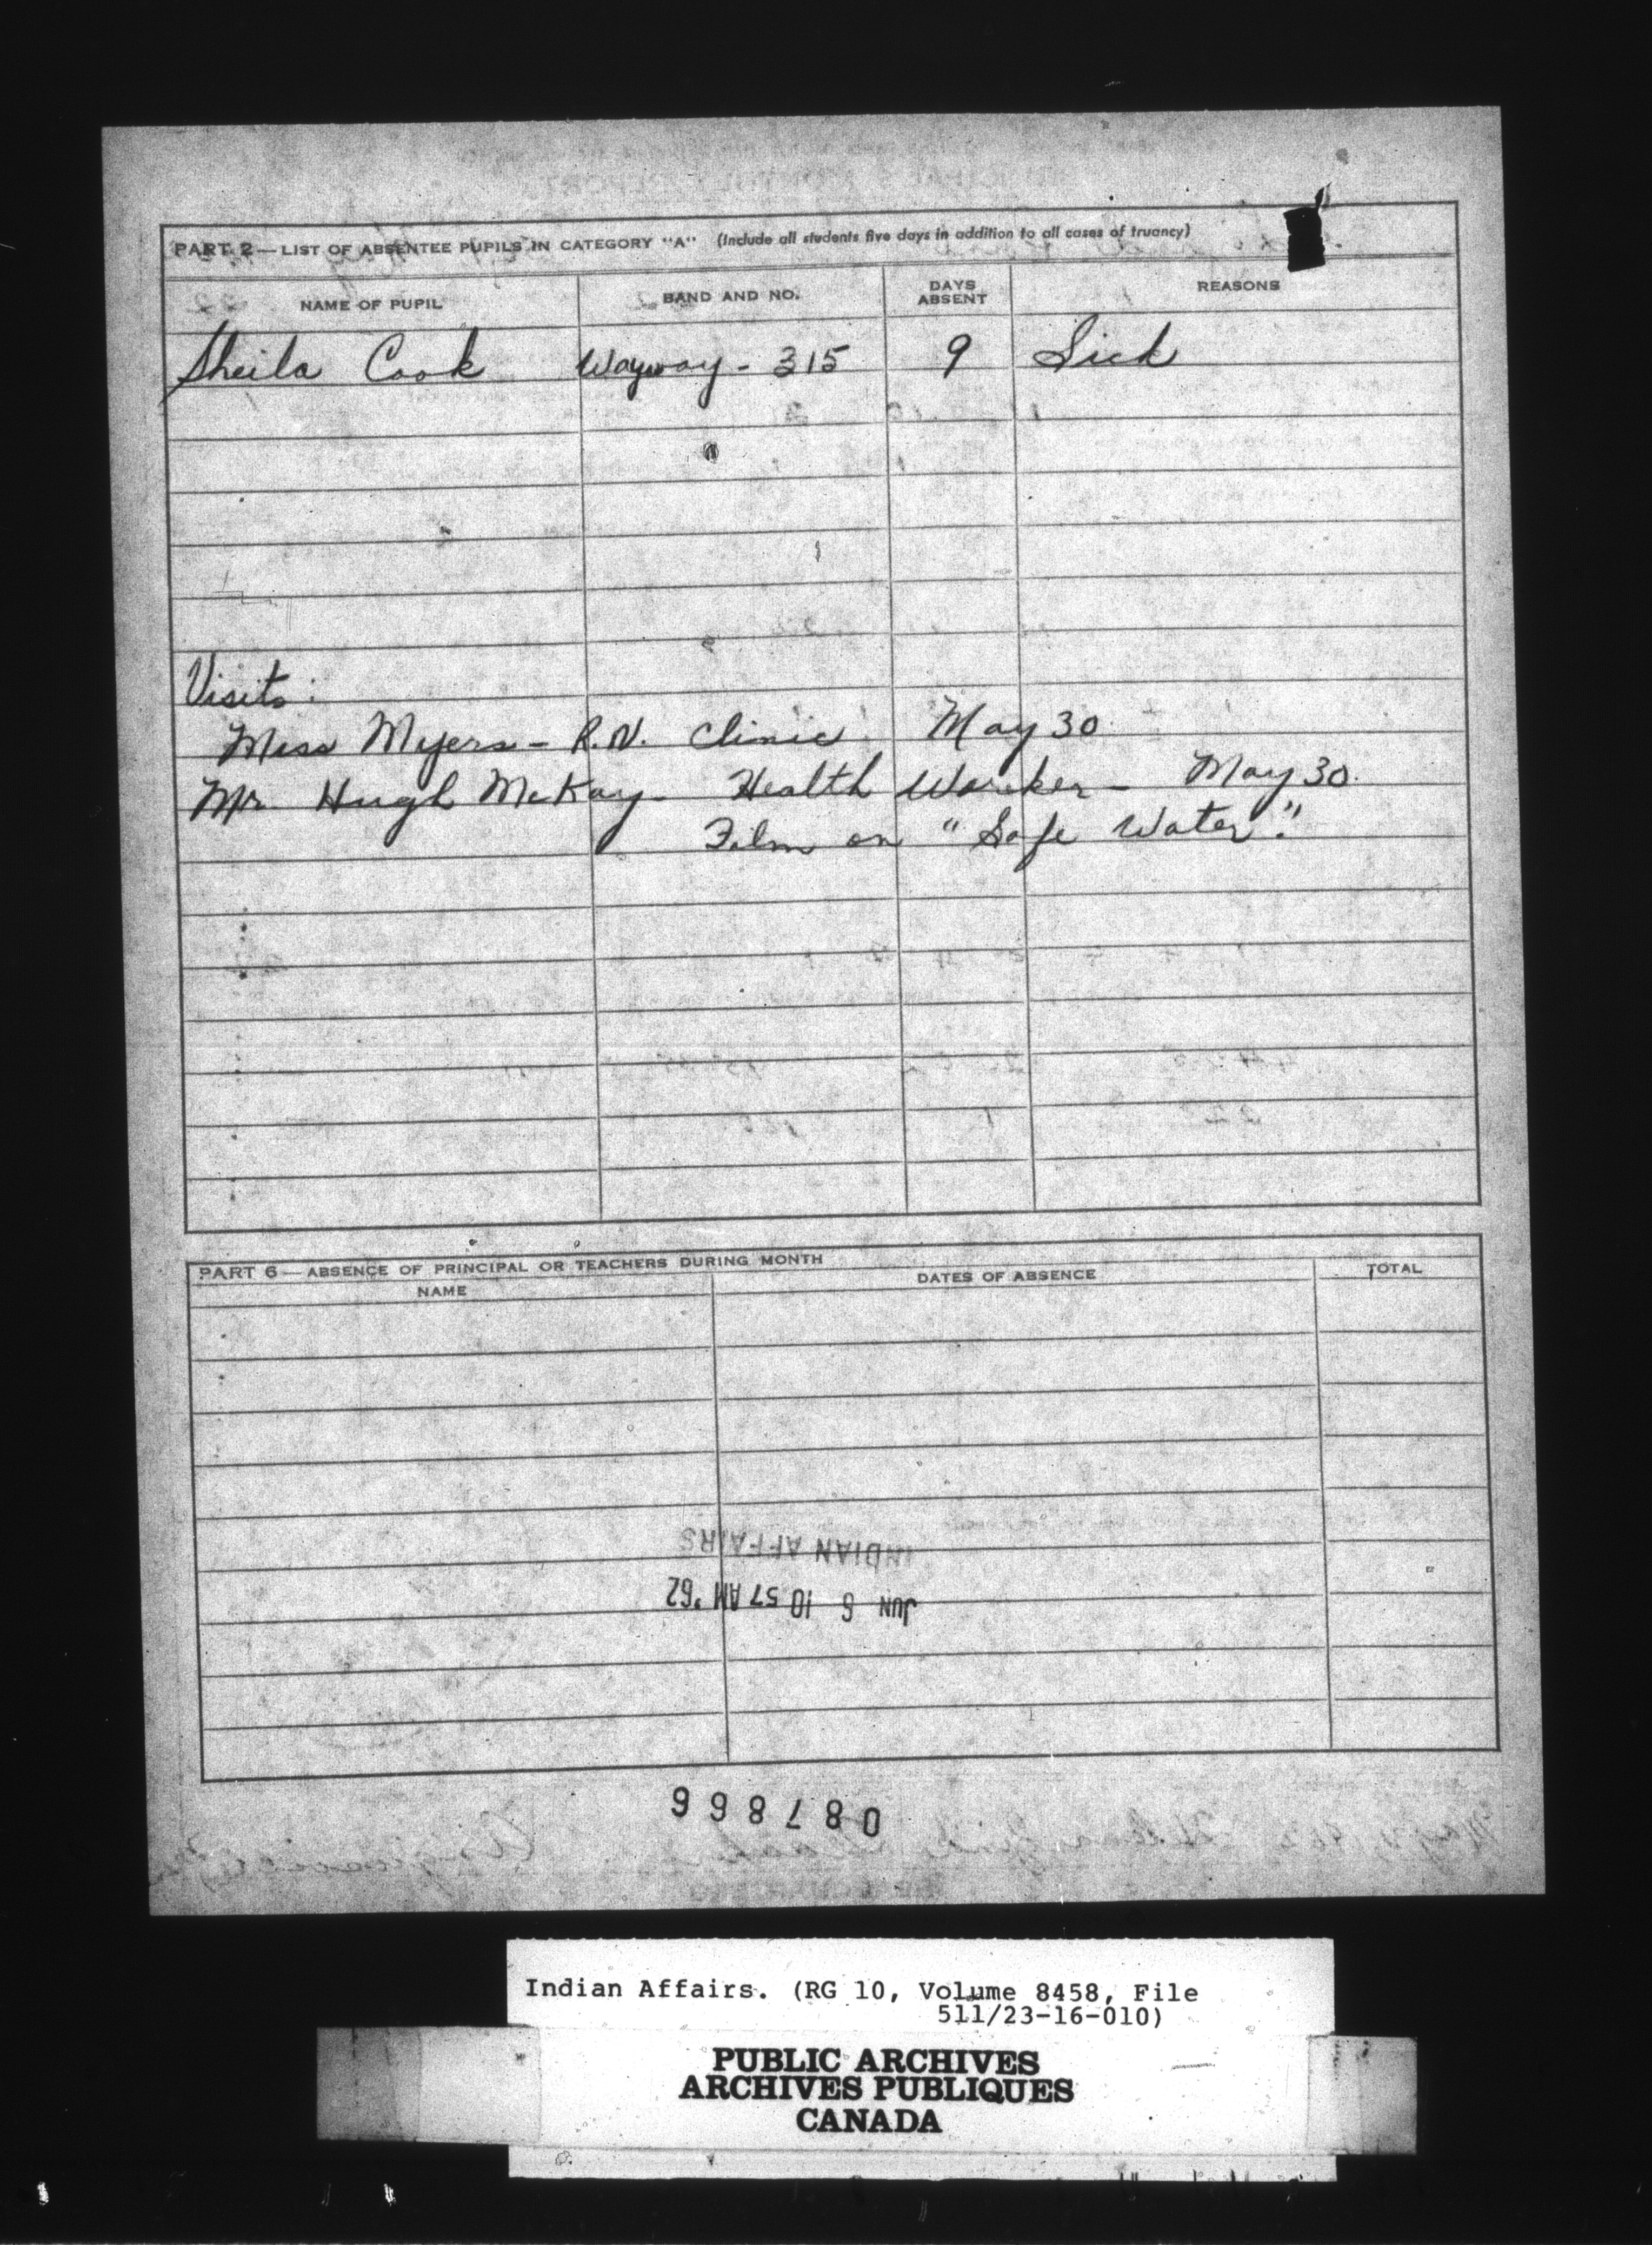 PART 2 — LIST OF ABSENTEE PUPILS IN CATEGORY "A" (Include all students five days in addition to all cases of truancy)
NAME OF PUPIL BAND AND NO. DAYS ABSENT REASONS
Sheila Cook Wayway - 315 9 Sick
Visits:
Miss Myers - R.N. Clinic May 30
Mr. Hugh McKay - Health Worker - May 30.
Film on "Safe Water."
PART 6 — ABSENCE OF PRINCIPAL OR TEACHERS DURING MONTH
NAME DATES OF ABSENCE TOTAL
INDIAN AFFAIRS
JUN 6 10 57 AM '62
087866
Indian Affairs. (RG 10, Volume 8458, File
511/23-16-010)
PUBLIC ARCHIVES
ARCHIVES PUBLIQUES
CANADA